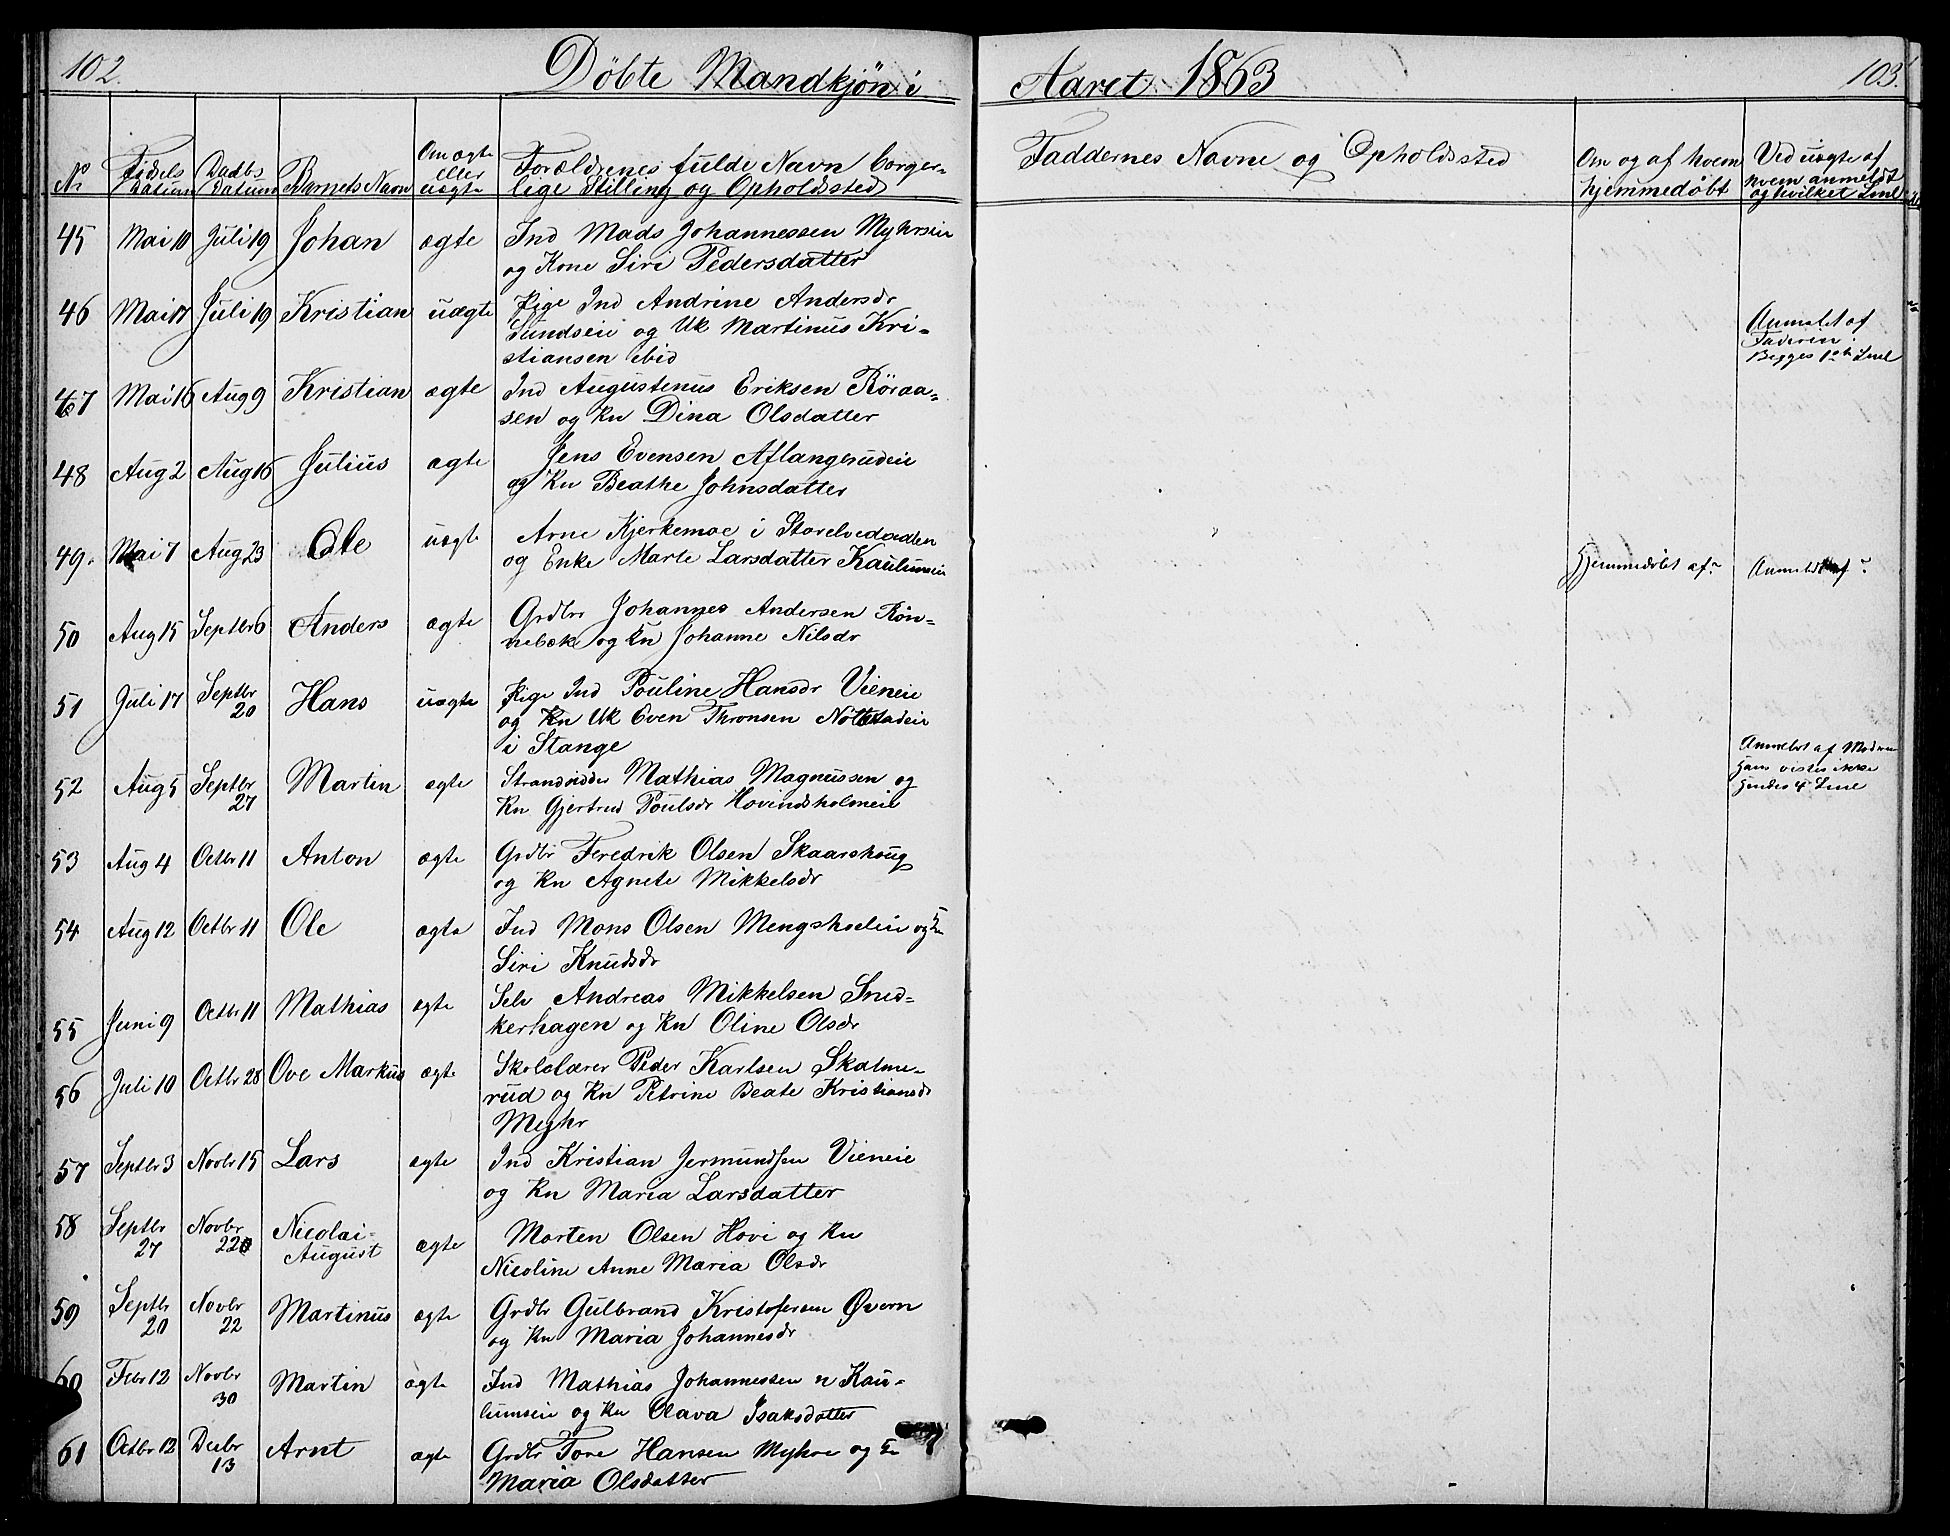 102. Döbte Mandkjön i Aaret 1863 103.
No Fødsels Datum Daabs Datum Barnets Navn Om ægte eller uægte Forældrenes fulde Navn borger-
lige Stilling og Opholdssted
Faddernes Navne og Opholdssted
Om og af hvem
hjemmedöbt
Ved uægte af
hvem anmeldt
og hvilket Leiel
45 Mai 10 Juli 19 Johan ægte Ind Mads Johannessen Myhrseie
og Kone Siri Pedersdatter
46 Mai 17 Juli 19 Kristian uægte Pige Ind Andrine Andersdr
Sundseie og Uk Martinus Kri-
stiansen ibid
Anmeldt af
Faderen.
Begges 1ste Leiel
47 Mai 16 Aug 9 Kristian ægte Ind Augustenus Eriksen Röraa-
sen og Kn Dina Olsdatter
48 Aug 2 Aug 16 Julius ægte Jens Evensen Aflangerudeie
og Kn Beathe Johnsdatter
49. Mai 7 Aug 23 Ole uægte Arne Kjerkemoe i Storelvedalen
og Enke Marte Larsdatter Kaulumeie
Hjemmedöbt af?
Anmeldt af?
50 Aug 15 Septbr 6 Anders ægte Grdbr Johannes Andersen Rön-
nebæk og Kn Johanne Nilsdr
51 Juli 17 Septbr 20 Hans uægte Pige Ind Pouline Hansdr Vieneie
og Kn Uk Even Thronsen Nöttestadeie
i Stange
Anmeldt af Moderen
Hans vistes ikke
Hendes 4de Leiel
52 Aug 5 Septbr 27 Martin ægte Strandsidder Mathias Magnussen og
Kn Gjertrud Poulsdr Hovindsholmeie
53 Aug 4 Octbr 11 Anton ægte Grdbr Fredrik Olsen Skaarshoug
og Kn Agnete Mikkelsdr
54 Aug 12 Octbr 11 Ole ægte Ind Mons Olsen Mengshoeleie og Kn
Siri Knudsdr
55 Juni 9 Octbr 11 Mathias ægte Selv Andreas Mikkelsen Sned-
kerhagen og Kn Oline Olsdr
56 Juli 10 Octbr 28 Ove Markus ægte Skolelærer Peder Karlsen Skatme-
rud og Kn Petrine Beate Kristiansdr
Myhr
57 Septbr 3 Novbr 15 Lars ægte Ind Kristian Jermundsen Vieneie
og Kn Maria Larsdatter
58 Septbr 27 Novbr 22 Nicolai-
August ægte Morten Olsen Hovi og Kn
Nicoline Anne Maria Olsdr
59 Septbr 20 Novbr 22 Martinus ægte Grdbr Gulbrand Kristofersen Övern
og Kn Maria Johannesdr
60 Febr 12 Novbr 30 Martin ægte Ind Mathias Johannessen n Kau-
lumseie og Kn Olava Isaksdatter
61 Octbr 12 Decbr 13 Arnt ægte Grdbr Tore Hansen Myhre og Kn
Maria Olsdatter